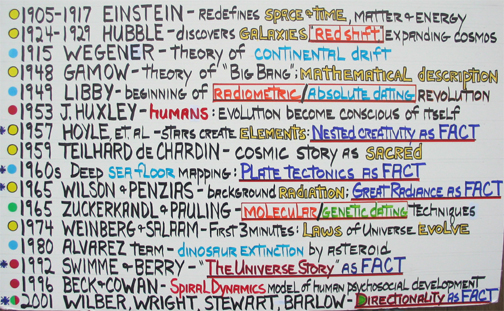 1905-1917 EINSTEIN - REDEFINES SPACE & TIME, MATTER & ENERGY
1924-1929 HUBBLE - DISCOVERS GALAXIES "RED SHIFT" EXPANDING COSMOS
1915 WEGENER - THEORY OF CONTINENTAL DRIFT
1948 GAMOW - THEORY OF "BIG BANG": MATHEMATICAL DESCRIPTION
1949 LIBBY - BEGINNING OF RADIOMETRIC/ABSOLUTE DATING REVOLUTION
1953 J. HUXLEY - HUMANS: EVOLUTION BECOME CONSCIOUS OF ITSELF
1957 HOYLE, ET. AL - STARS CREATE ELEMENTS: NESTED CREATIVITY AS FACT
1959 TEILHARD DE CHARDIN - COSMIC STORY AS SACRED
1960s DEEP SEA-FLOOR MAPPING: PLATE TECTONICS AS FACT
1965 WILSON & PENZIAS - BACKGROUND RADIATION: GREAT RADIANCE AS FACT
1965 ZUCKERKANDL & PAULING - MOLECULAR/GENETIC DATING TECHNIQUES
1974 WEINBERG & SALAAM - FIRST 3 MINUTES: LAWS OF UNIVERSE EVOLVE
1980 ALVAREZ TEAM - DINOSAUR EXTINCTION BY ASTEROID
1992 SWIMME & BERRY - "THE UNIVERSE STORY" AS FACT
1996 BECK & COWAN - SPIRAL DYNAMICS MODEL OF HUMAN PSYCHOSOCIAL DEVELOPMENT
2001 WILBER, WRIGHT, STEWART, BARLOW - DIRECTIONALITY AS FACT